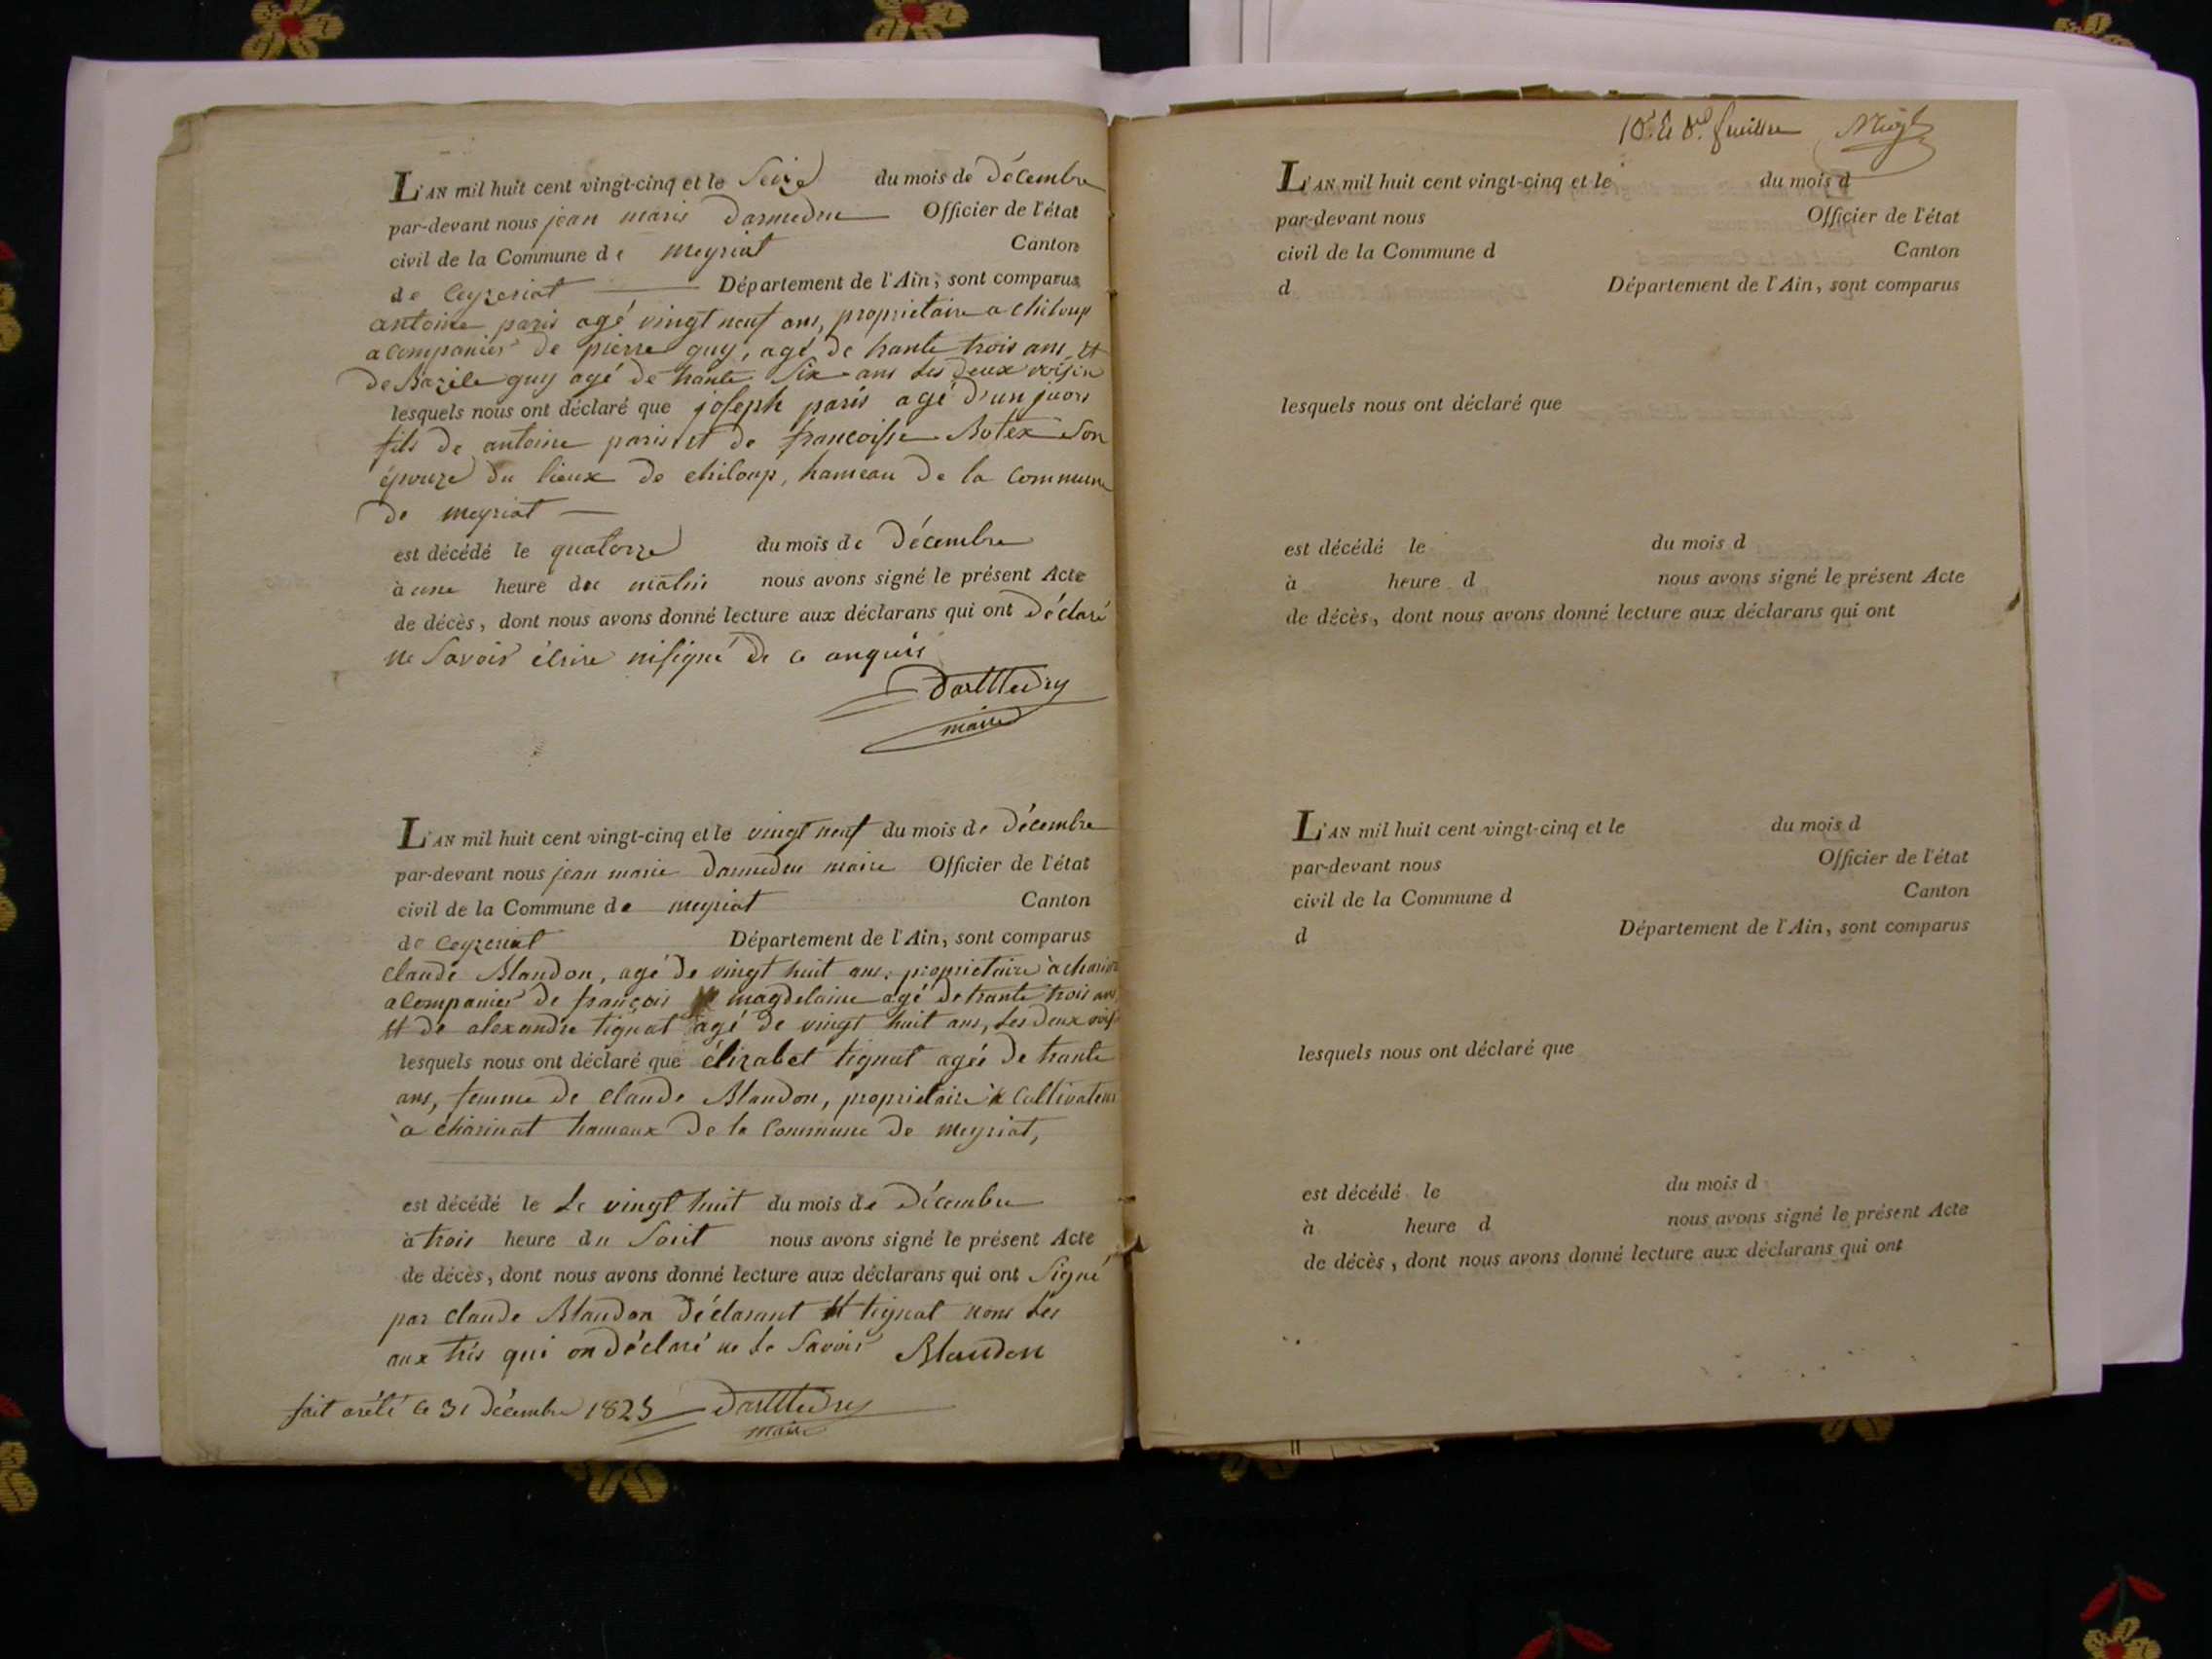 L'AN mil huit cent vingt-cinq et le Seize du mois de Décembre
par-devant nous jean marie Darmedru Officier de l'état
civil de la Commune de meyriat Canton
de Ceyzeriat Département de l'Ain, sont comparus
antoine paris agé vingt neuf ans, proprietaire a chiloup
acompanier de pierre guy, agé de trante trois ans, et
de Bazile guy agé de trante Six ans Les Deux voisin
lesquels nous ont déclaré que joseph paris agé d'un jours
fils de antoine paris et de francoisse Botex Son
épouze du lieux de chiloup, hameau de la Commune
de meyriat
est décédé le quatorze du mois de Décembre
à une heure du matin nous avons signé le présent Acte
de décès, dont nous avons donné lecture aux déclarans qui ont Déclaré
ne Savoir écrire ni signé de ce anquis
DarMedru
maire
L'AN mil huit cent vingt-cinq et le vingt neuf du mois de Décembre
par-devant nous jean marie Darmedru maire Officier de l'état
civil de la Commune de meyriat Canton
de Ceyzeriat Département de l'Ain, sont comparus
Claude Blandon, agé de vingt huit ans, proprietaire à
acompanier de françois magdelaine agé de trante trois ans
et de alexandre tignat agé de vingt huit ans, Les Deux
lesquels nous ont déclaré que élizabet tignat agée de trante
ans, femme de Claude Blandon, proprietaire & Cultivateur
à charinat hameaux de la Commune de meyriat,
est décédé le Le vingt huit du mois de Décembre
à trois heure du Soirt nous avons signé le présent Acte
de décès, dont nous avons donné lecture aux déclarans qui ont Signé
par Claude Blandon Déclarant et tignat nons Les
aux trés qui on Déclaré ne Le Savoir Blandon
fait arété le 31 Décembre 1825 DarMedru
maire
feuillet
L'AN mil huit cent vingt-cinq et le du mois d
par-devant nous Officier de l'état
civil de la Commune d Canton
d Département de l'Ain, sont comparus
lesquels nous ont déclaré que
est décédé le du mois d
à heure d nous avons signé le présent Acte
de décès, dont nous avons donné lecture aux déclarans qui ont
L'AN mil huit cent vingt-cinq et le du mois d
par-devant nous Officier de l'état
civil de la Commune d Canton
d Département de l'Ain, sont comparus
lesquels nous ont déclaré que
est décédé le du mois d
à heure d nous avons signé le présent Acte
de décès, dont nous avons donné lecture aux déclarans qui ont